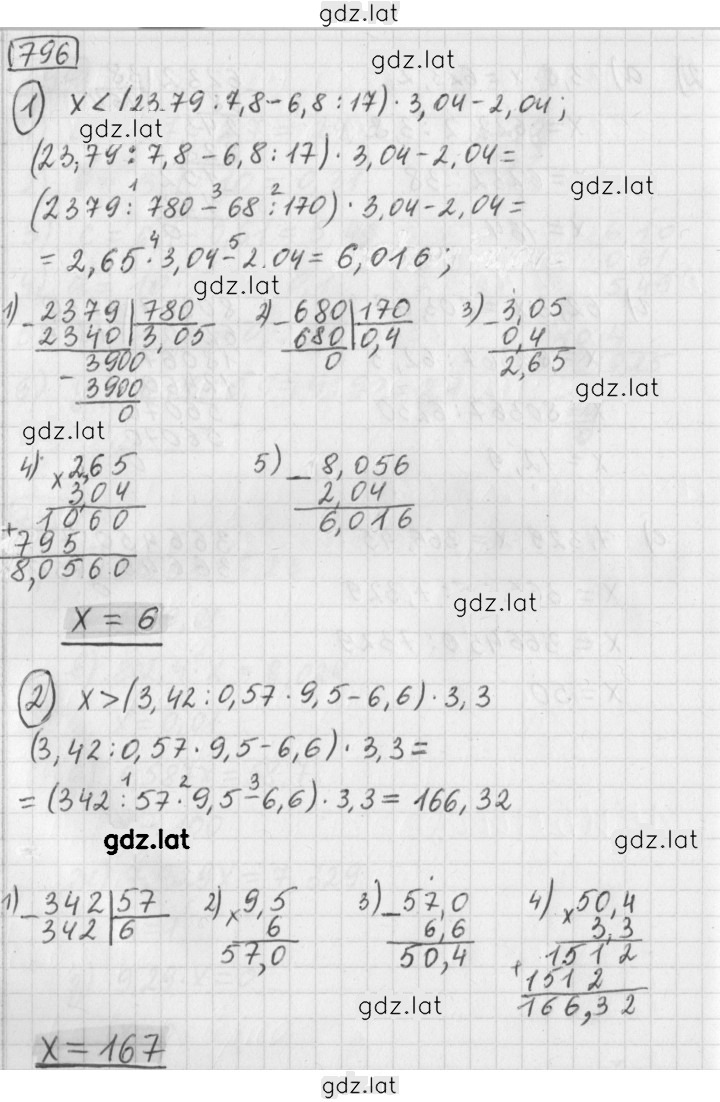 gdz.lat
796
gdz.lat
1) x < (23.79 : 7,8 - 6,8 : 17) · 3,04 - 2,04;
gdz.lat
(23,79 : 7,8 - 6,8 : 17) · 3,04 - 2,04 =
gdz.lat
1 3 2
(2379 : 780 - 68 : 170) · 3,04 - 2,04 =
4 5
= 2,65 · 3,04 - 2.04 = 6,016;
gdz.lat
1) - 2379 | 780 2) - 680 | 170 3) - 3,05
2340 | 3,05 680 | 0,4 0,4
- 3900 0 2,65
3900 gdz.lat
0
gdz.lat
4) x 2,65 5) - 8,056
3,04 2,04
+ 1060 6,016
795
8,0560
gdz.lat
x = 6
2) x > (3,42 : 0,57 · 9,5 - 6,6) · 3,3
(3,42 : 0,57 · 9,5 - 6,6) · 3,3 =
1 2 3
= (342 : 57 · 9,5 - 6,6) · 3,3 = 166,32
gdz.lat gdz.lat
1) - 342 | 57 2) x 9,5 3) - 57,0 4) x 50,4
342 | 6 6 6,6 3,3
57,0 50,4 + 1512
1512
gdz.lat 166,32
x = 167
gdz.lat